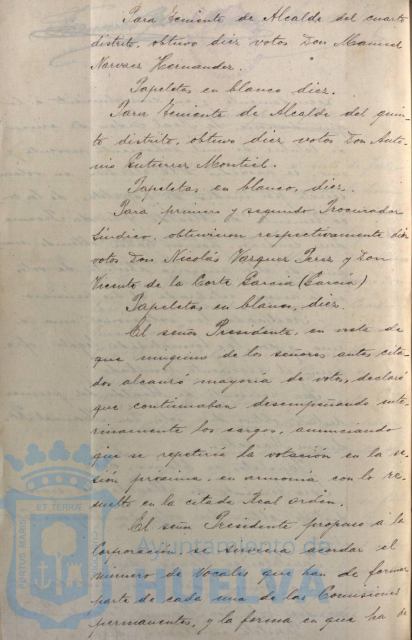 Para Teniente de Alcalde del cuarto
distrito, obtuvo diez votos Don Manuel
Narvaez Hernandez.
Papeletas en blanco diez.
Para Teniente de Alcalde del quin-
to distrito, obtuvo diez votos Don Anto-
nio Gutierrez Montiel.
Papeletas en blanco, diez.
Para primero y segundo Procurador
Síndico, obtuvieron respectivamente diez
votos Don Nicolás Vazquez Perez y Don
Vicente de la Corte Garcia (Garcia)
Papeletas en blanco, diez.
El señor Presidente, en vista de
que ninguno de los señores antes cita-
dos alcanzó mayoría de votos, declaró
que continuaban desempeñando inte-
rinamente los cargos, anunciando
que se repetiría la votación en la se-
sión proxima, en armonía con lo re-
suelto en la citada Real orden.
El señor Presidente propuso á la
Corporación se sirviera acordar el
número de Vocales que han de formar
parte de cada una de las Comisiones
permanentes, y la forma en que ha de
PORTUS MARIS ET TERRAE
Ayuntamiento de
HUELVA